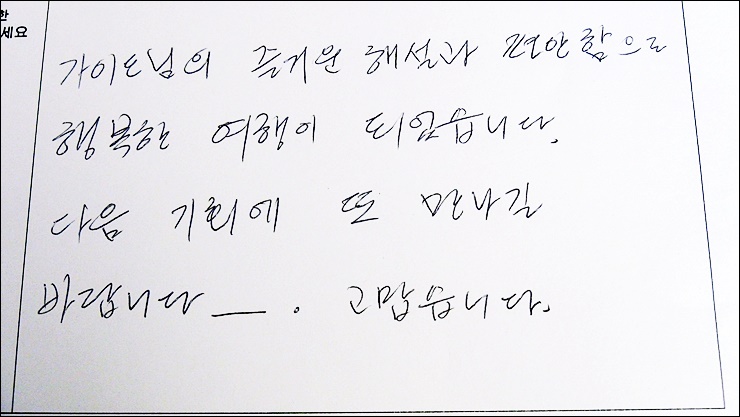 한
세요
가이드님의 즐거운 해설과 편안함으로
행복한 여행이 되었습니다.
다음 기회에 또 만나길
바랍니다 __ . 고맙습니다.